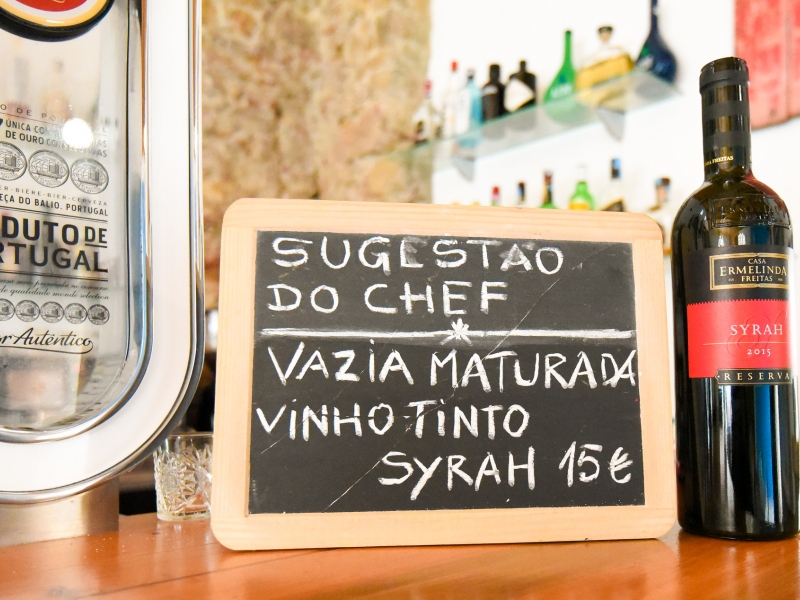 ÚNICA CO
DE OURO CO
ER-BIÈRE-BIER-CERVEZA
ÇA DO BALIO, PORTUGAL
DUTO DE
RTUGAL
or Autêntico
SUGESTAO
DO CHEF
VAZIA MATURADA
VINHO TINTO
SYRAH 15€
FREITAS
CASA
ERMELINDA
FREITAS
SYRAH
2015
RESERVA